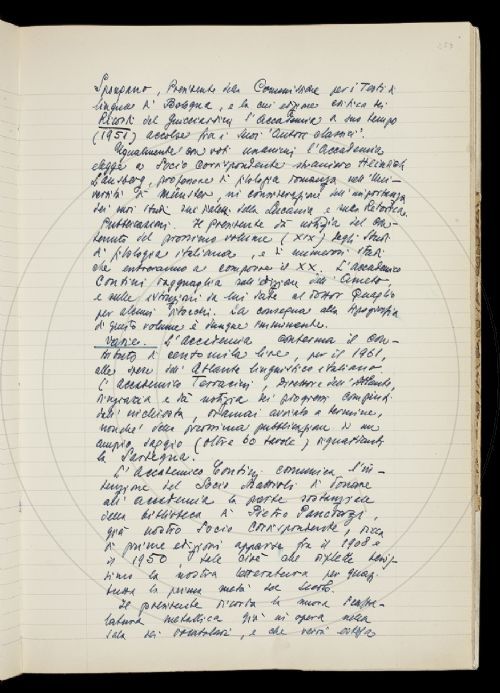 259
Spongano, Presidente della Commissione per i Testi di
lingua di Bologna, e la cui edizione critica dei
Ricordi del Guicciardini l'Accademia a suo tempo
(1951) accolse fra i suoi "autori classici".
Ugualmente con voti unanimi l'Accademia
elegge a Socio corrispondente straniero Heinrich
Lausberg, professore di filologia romanza nell'Uni-
versità di Münster, in considerazione dell'importanza
dei suoi studi sui dialetti della Lucania e sulla Retorica.
Pubblicazioni. Il presidente dà notizia del con-
tenuto del prossimo volume (XIX) degli Studi
di filologia italiana, e di numerosi studi
che entreranno a comporre il XX. L'accademico
Contini ragguaglia sull'edizione dell'Ameto,
e sulle istruzioni da lui date al dottor Quaglio
per alcuni ritocchi. La consegna alla tipografia
di questo volume è dunque imminente.
Varie. L'Accademia conferma il con-
tributo di centomila lire, per il 1961,
alle spese dell'Atlante linguistico italiano.
L'Accademico Terracini, Direttore dell'Atlante,
ringrazia e dà notizia dei progressi compiuti
dell'inchiesta, oramai avviata a termine,
nonché della prossima pubblicazione di un
ampio saggio (oltre 60 tavole) riguardante
la Sardegna.
L'Accademico Contini comunica l'in-
tenzione del Socio Mattioli di donare
all'accademia la parte sostanziale
della biblioteca di Pietro Pancrazi,
già nostro Socio corrispondente, ricca
di prime edizioni apparse fra il 1908 e
il 1950, tale cioè che riflette
la nostra letteratura per quasi
tutta la prima metà del secolo.
Il presidente ricorda la nuova scaffa-
latura metallica già in opera nella
sala dei vocabolari, e che verrà estesa